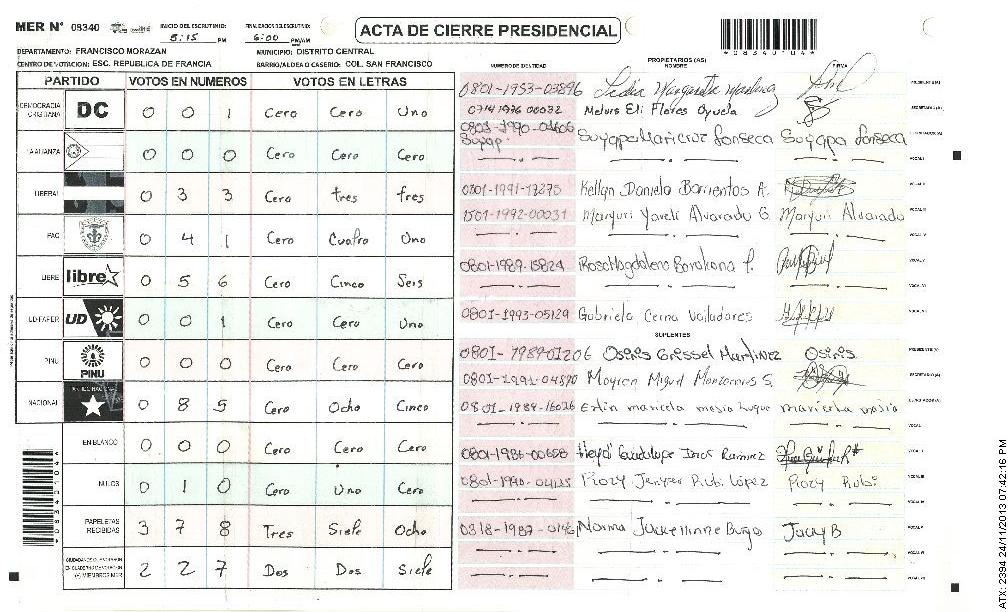 MER N° 08340 INICIO DEL ESCRUTINIO: 5:15 PM FINALIZACION DEL ESCRUTINIO: 6:00 PM/AM
ACTA DE CIERRE PRESIDENCIAL
*08340104*
DEPARTAMENTO: FRANCISCO MORAZAN MUNICIPIO: DISTRITO CENTRAL
CENTRO DE VOTACION: ESC. REPUBLICA DE FRANCIA BARRIO/ALDEA O CASERIO: COL. SAN FRANCISCO
PARTIDO VOTOS EN NUMEROS VOTOS EN LETRAS
DEMOCRACIA CRISTIANA DC 0 0 1 Cero Cero Uno
LA ALIANZA 0 0 0 Cero Cero Cero
LIBERAL 0 3 3 Cero tres tres
PAC 0 4 1 Cero Cuatro Uno
LIBRE libre 0 5 6 Cero Cinco Seis
UD-FAPER UD 0 0 1 Cero Cero Uno
PINU PINU 0 0 0 Cero Cero Cero
NACIONAL 0 8 5 Cero Ocho Cinco
EN BLANCO 0 0 0 Cero Cero Cero
NULOS 0 1 0 Cero Uno Cero
PAPELETAS RECIBIDAS 3 7 8 Tres Siete Ocho
2 2 7 Dos Dos Siete
NUMERO DE IDENTIDAD PROPIETARIOS (AS) NOMBRE FIRMA
0801-1953-03896 Lidia Margarita PRESIDENTE (A)
0714 1976 00032 Melvis Eli Flores Oyuela SECRETARIO (A)
0803-1990-04606 Suyapa Maricruz Fonseca Suyapa Fonseca
Suyap
VOCAL I
0801-1991-17275 Kellyn Daniela Barrientos A. VOCAL II
1501-1992-00031 Maryuri Yareli Alvarado G. Maryuri Alvarado VOCAL III
VOCAL IV
0801-1989-15824 VOCAL V
VOCAL VI
0801-1993-05129 Gabriela Cerna Valladares VOCAL VII
SUPLENTES
0801-1989-01206 Osiris Grissel Martinez Osiris PRESIDENTE (A)
0801-1991-04870 SECRETARIO (A)
0801-1989-16026
VOCAL I
0801-1986-00658 VOCAL II
Rubi López Rubi VOCAL III
VOCAL IV
Norma Jackelinne Burgos Jacky B VOCAL V
VOCAL VI
VOCAL VII
ATX: 2394 24/11/2013 07:42:16 PM